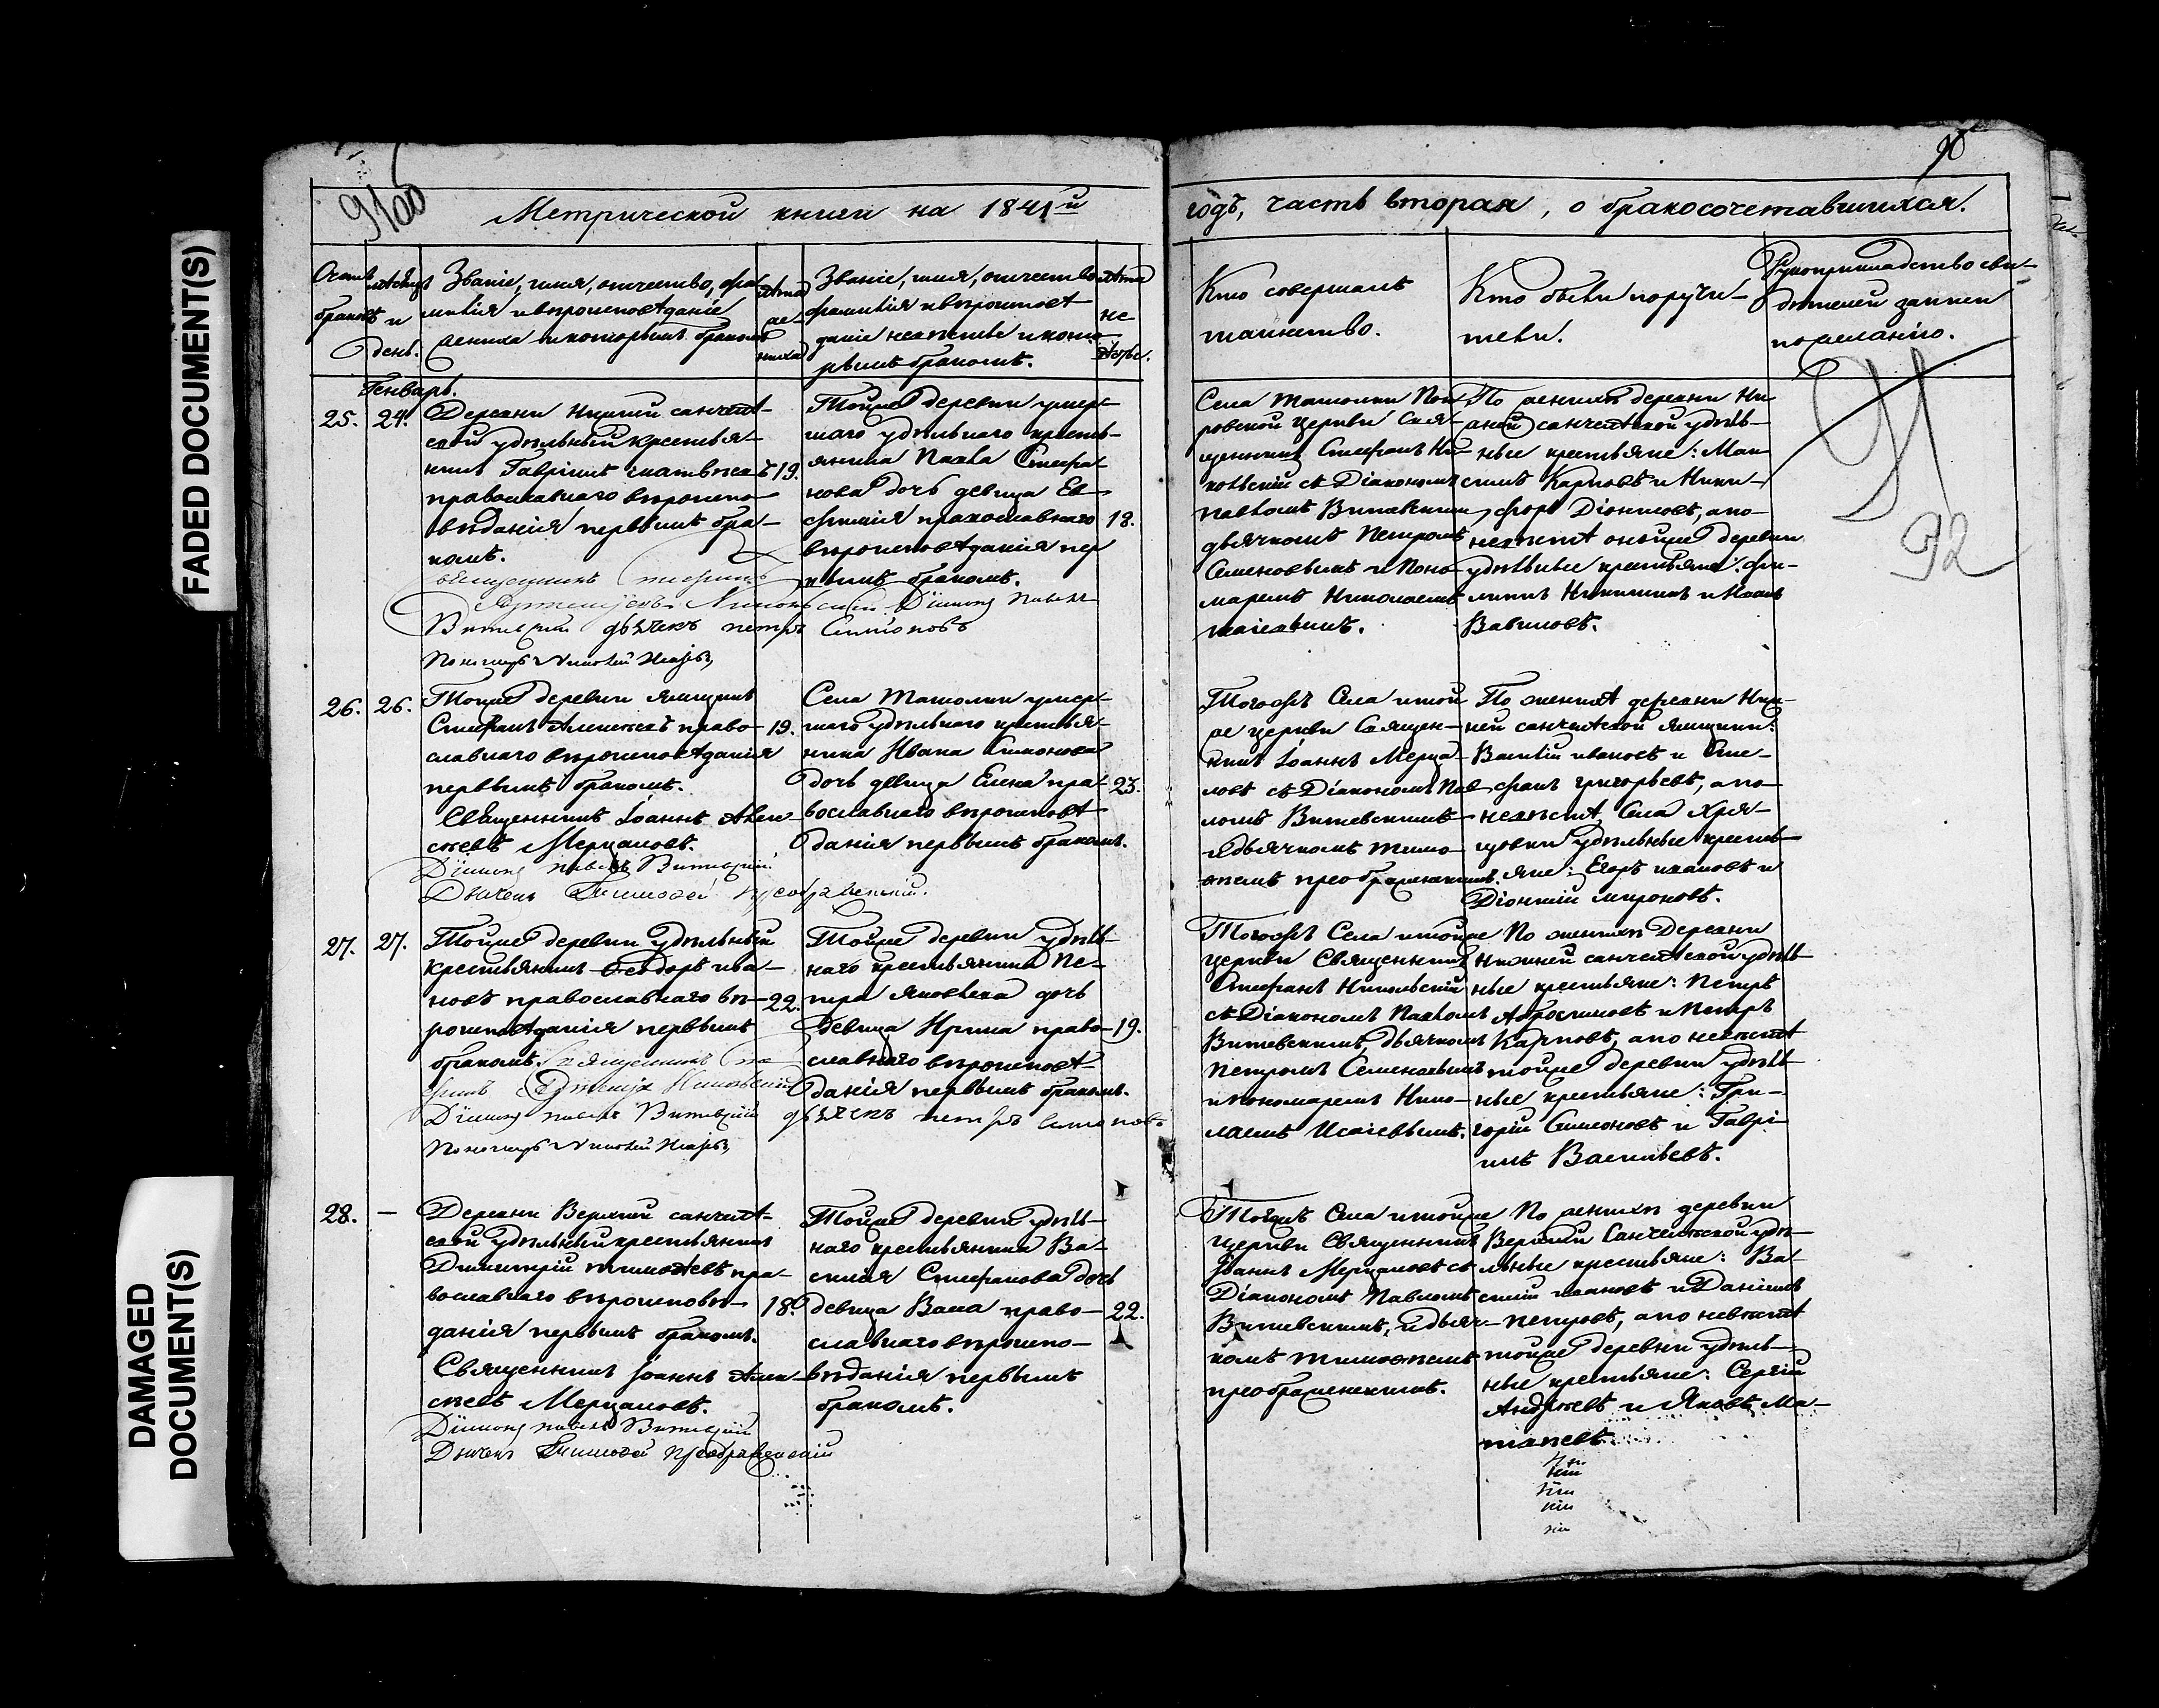 FADED DOCUMENT(S)
DAMAGED
DOCUMENT(S)
90
92
Метрической книги на 1841й
годъ, часть вторая, о бракосочетавшихся.
Счетъ
браковъ
и
день.
Званіе, имя, отчество, фа-
милія и вѣроисповѣданіе
жениха и которымъ бракомъ
Лѣта
же-
ниха
Званіе, имя, отчество
фамилія и вѣроисповѣ
даніе невѣсты и кото
рымъ бракомъ.
Лѣта
не
вѣсты.
Кто совершалъ
таинство.
Кто были поручи-
тели.
Рукоприкладство сви-
дѣтелей записи
по желанію.
Генварь.
25. 24.
Деревни Нижней санчелѣ-
евой удѣльный крестья-
нинъ Гавріилъ
православнаго вѣроиспо-
вѣданія первымъ бра-
комъ.
19.
Тойже деревни умер-
шаго удѣльнаго кресть-
янина Павла Стефа-
нова дочь девица Ев
фимія православнаго
вѣроисповѣданія пер
вымъ бракомъ.
18.
Діаконъ Павелъ
Витевскій дьячекъ петръ Симіоновъ
Пономарь Николай
Села ташолки Пок
ровской церкви Свя-
щенникъ Стефанъ Ни-
кольскій съ Діакономъ
павломъ Витевскимъ,
дьячкомъ Петромъ
Семеновымъ и Поно-
маремъ Николаемъ
Исаіевымъ.
По женихѣ деревни Ни
жней санчелѣевой удѣль-
ные крестьяне: Мак
симъ Карповъ и Ники-
форъ Діонисовъ, а по
невѣстѣ оныже деревни
удѣльные крестьяне: фи-
липпъ Никитинъ и Иванъ
Вавиловъ.
26. 26.
Тойже деревни ямщикъ
Стефанъ Алексѣевъ право-
славнаго вѣроисповѣданія
первымъ бракомъ.
19.
Священникъ Іоаннъ Алек-
сѣевъ Мерцаловъ.
Діаконъ павелъ Витевскій
Дьячекъ Тимофей преображенскій.
Села Ташолки умер-
шаго удѣльнаго крестья-
нина Ивана Симонова
дочь девица Елена пра-
вославнаго вѣроисповѣ
данія первымъ бракомъ.
23.
Тогожъ Села и той
же церкви Священ-
никъ Іоаннъ Мерца-
ловъ съ Діакономъ Пав
ломъ Витевскимъ
и дьячкомъ тимо-
ѳеемъ преображенскимъ.
По женихѣ деревни Ниж-
ней санчелѣевой ямщики:
Василій ивановъ и Сте-
фанъ григорьевъ, а по
невѣстѣ Села Хря-
щовки удѣльные кресть-
яне: Егоръ ивановъ и
Діонисій мироновъ.
27. 27.
Тойже деревни удѣльный
крестьянинъ Ѳеодоръ ива-
новъ православнаго вѣ-
роисповѣданія первымъ
бракомъ. Священникъ Сте
фанъ Никольскій
Діаконъ павелъ Витевскій дьячекъ петръ Симіоновъ
Пономарь Николай
22.
Тойже деревни удѣль
наго крестьянина Пе-
тра Яковлева дочь
девица Ирина право-
славнаго вѣроисповѣ-
данія первымъ бракомъ.
19.
Тогожъ Села и тойже
церкви Священникъ
Стефанъ Никольскій
съ Діакономъ Павломъ
Витевскимъ, дьячкомъ
Петромъ Семеновымъ
и пономаремъ Нико-
лаемъ Исаіевымъ.
По женихѣ Деревни
нижней санчелѣевой удѣль
ные крестьяне: Петръ
Абросимовъ и Петръ
Карповъ, а по невѣстѣ
тойже деревни удѣль
ные крестьяне: Гри-
горій Симеоновъ и Гаврі-
илъ Васильевъ.
28. —
Деревни Верхней санчелѣ-
евой удѣльный крестьянинъ
Димитрій тимоѳеевъ пра-
вославнаго вѣроисповѣ-
данія первымъ бракомъ.
18.
Священникъ Іоаннъ Алек-
сѣевъ Мерцаловъ.
Діаконъ павелъ Витевскій
Дьячекъ Тимофей преображенскій
Тойже деревни удѣль-
наго крестьянина Ва-
силія Стефанова дочь
девица Васа право-
славнаго вѣроиспо-
вѣданія первымъ
бракомъ.
22.
Тогожъ Села и тойже
Церкви Священникъ
Іоаннъ Мерцаловъ съ
Діакономъ Павломъ
Витевскимъ, и дьяч-
комъ тимоѳеемъ
преображенскимъ.
По женихѣ деревни
Верхней Санчелѣевой удѣ-
льные крестьяне: Ва-
силій ивановъ и Даніилъ
петровъ, а по невѣстѣ
тойже деревни удѣль-
ные крестьяне: Сергій
Андреевъ и Яковъ Ма-
твеевъ.